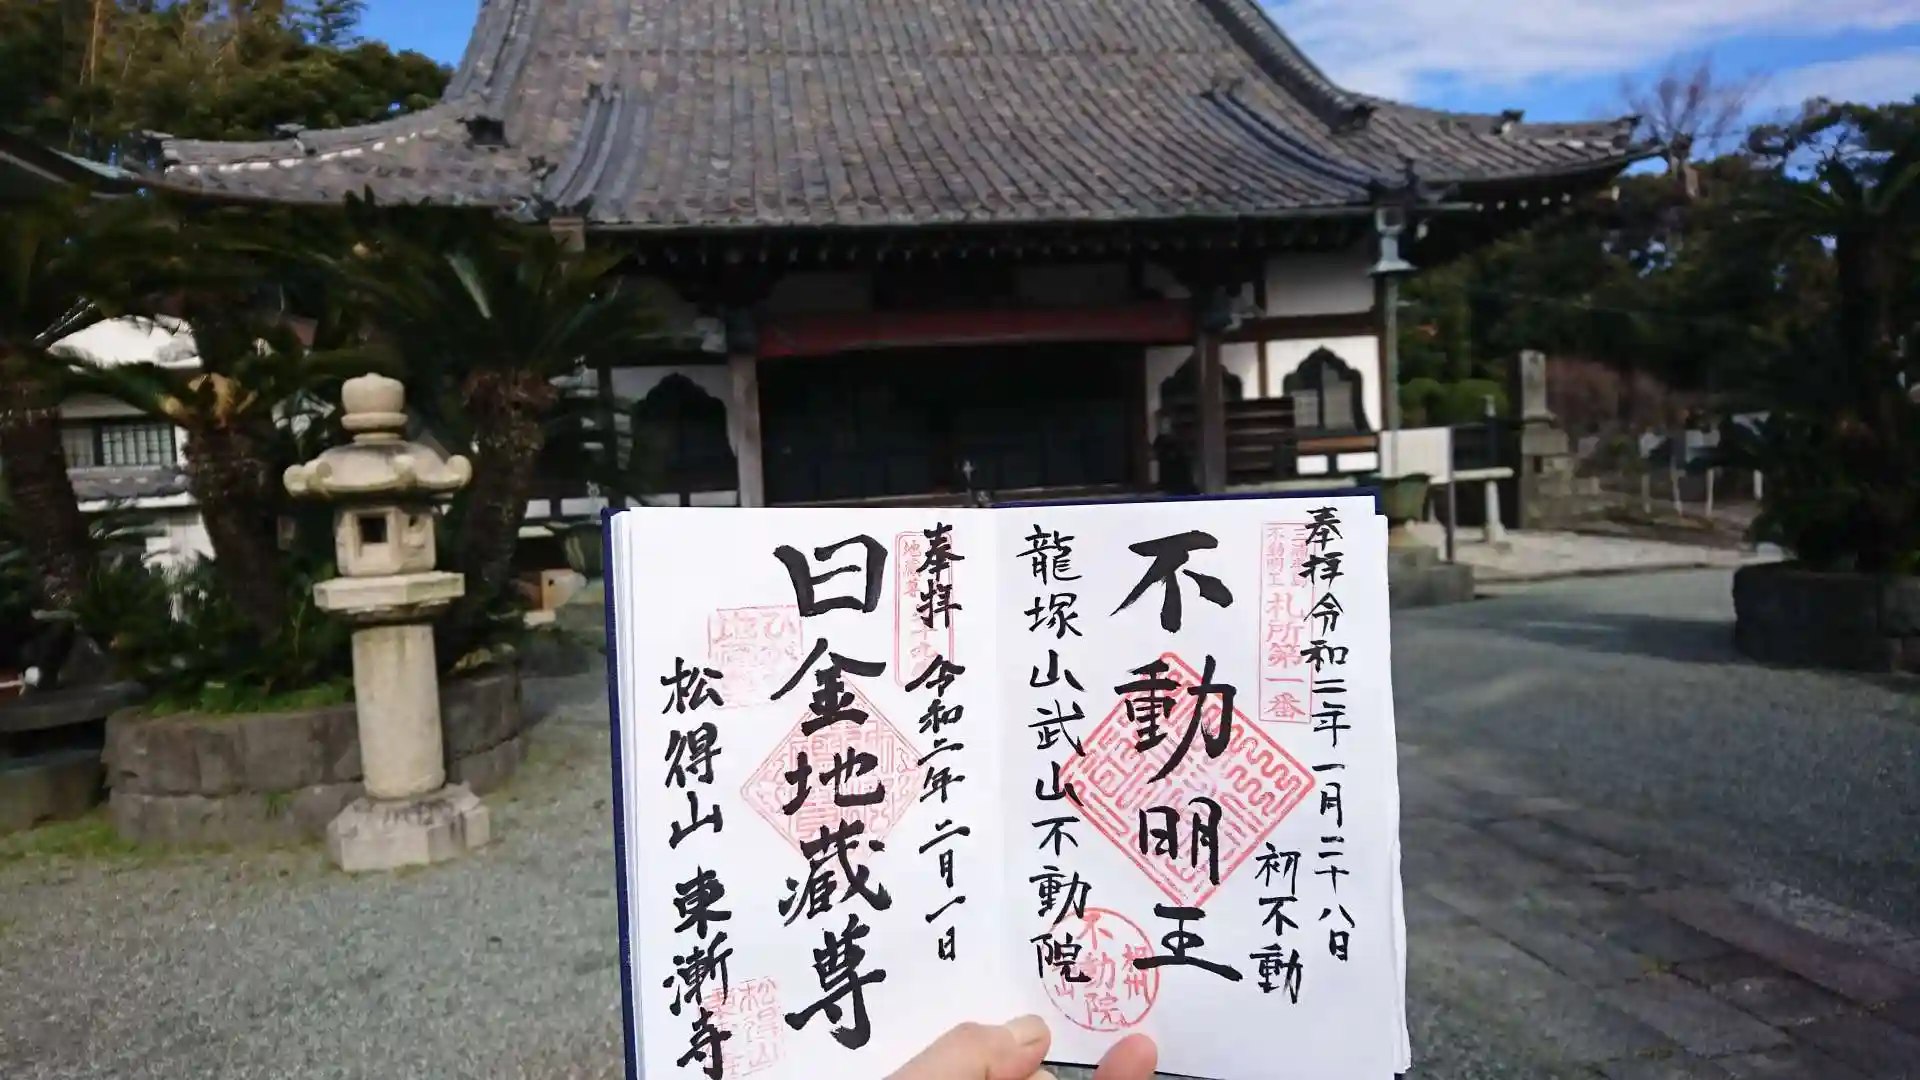 奉拝令和二年一月二十八日
初不動
札所第一番
不動明王
不動明王
龍塚山武山不動院
相州
不動院
奉拝 令和二年二月一日
地蔵尊
日金地蔵尊
松得山 東漸寺
松得山